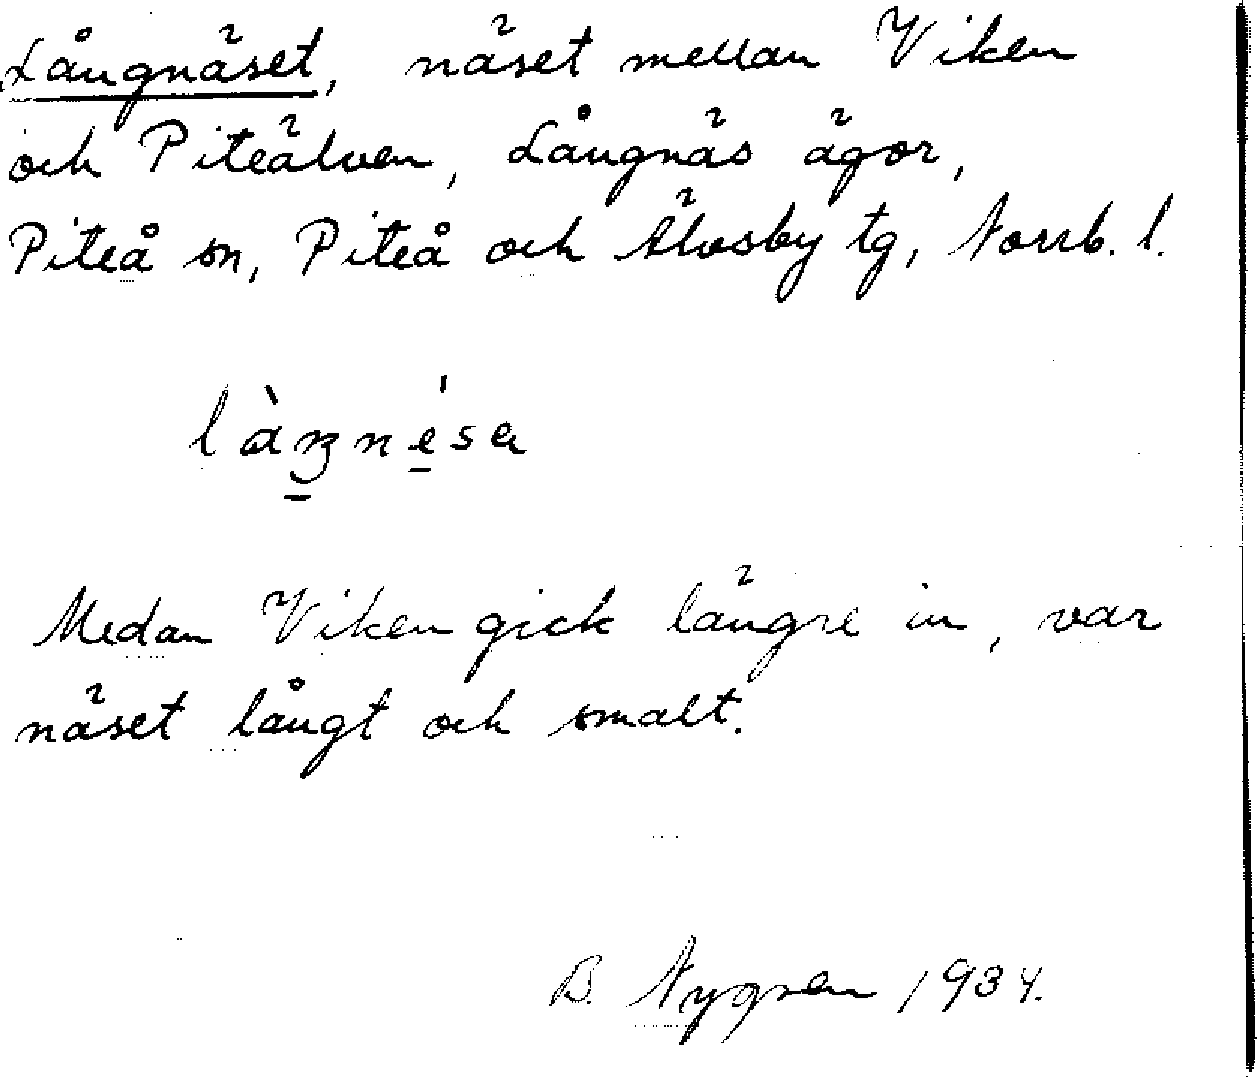 Långnäset, näset mellan Viken
och Piteälven, Långnäs ägor,
Piteå sn, Piteå och Älvsby tg, Norrb. l.
Medan Viken gick längre in, var
näset långt och smalt.
B. Nygren 1934.